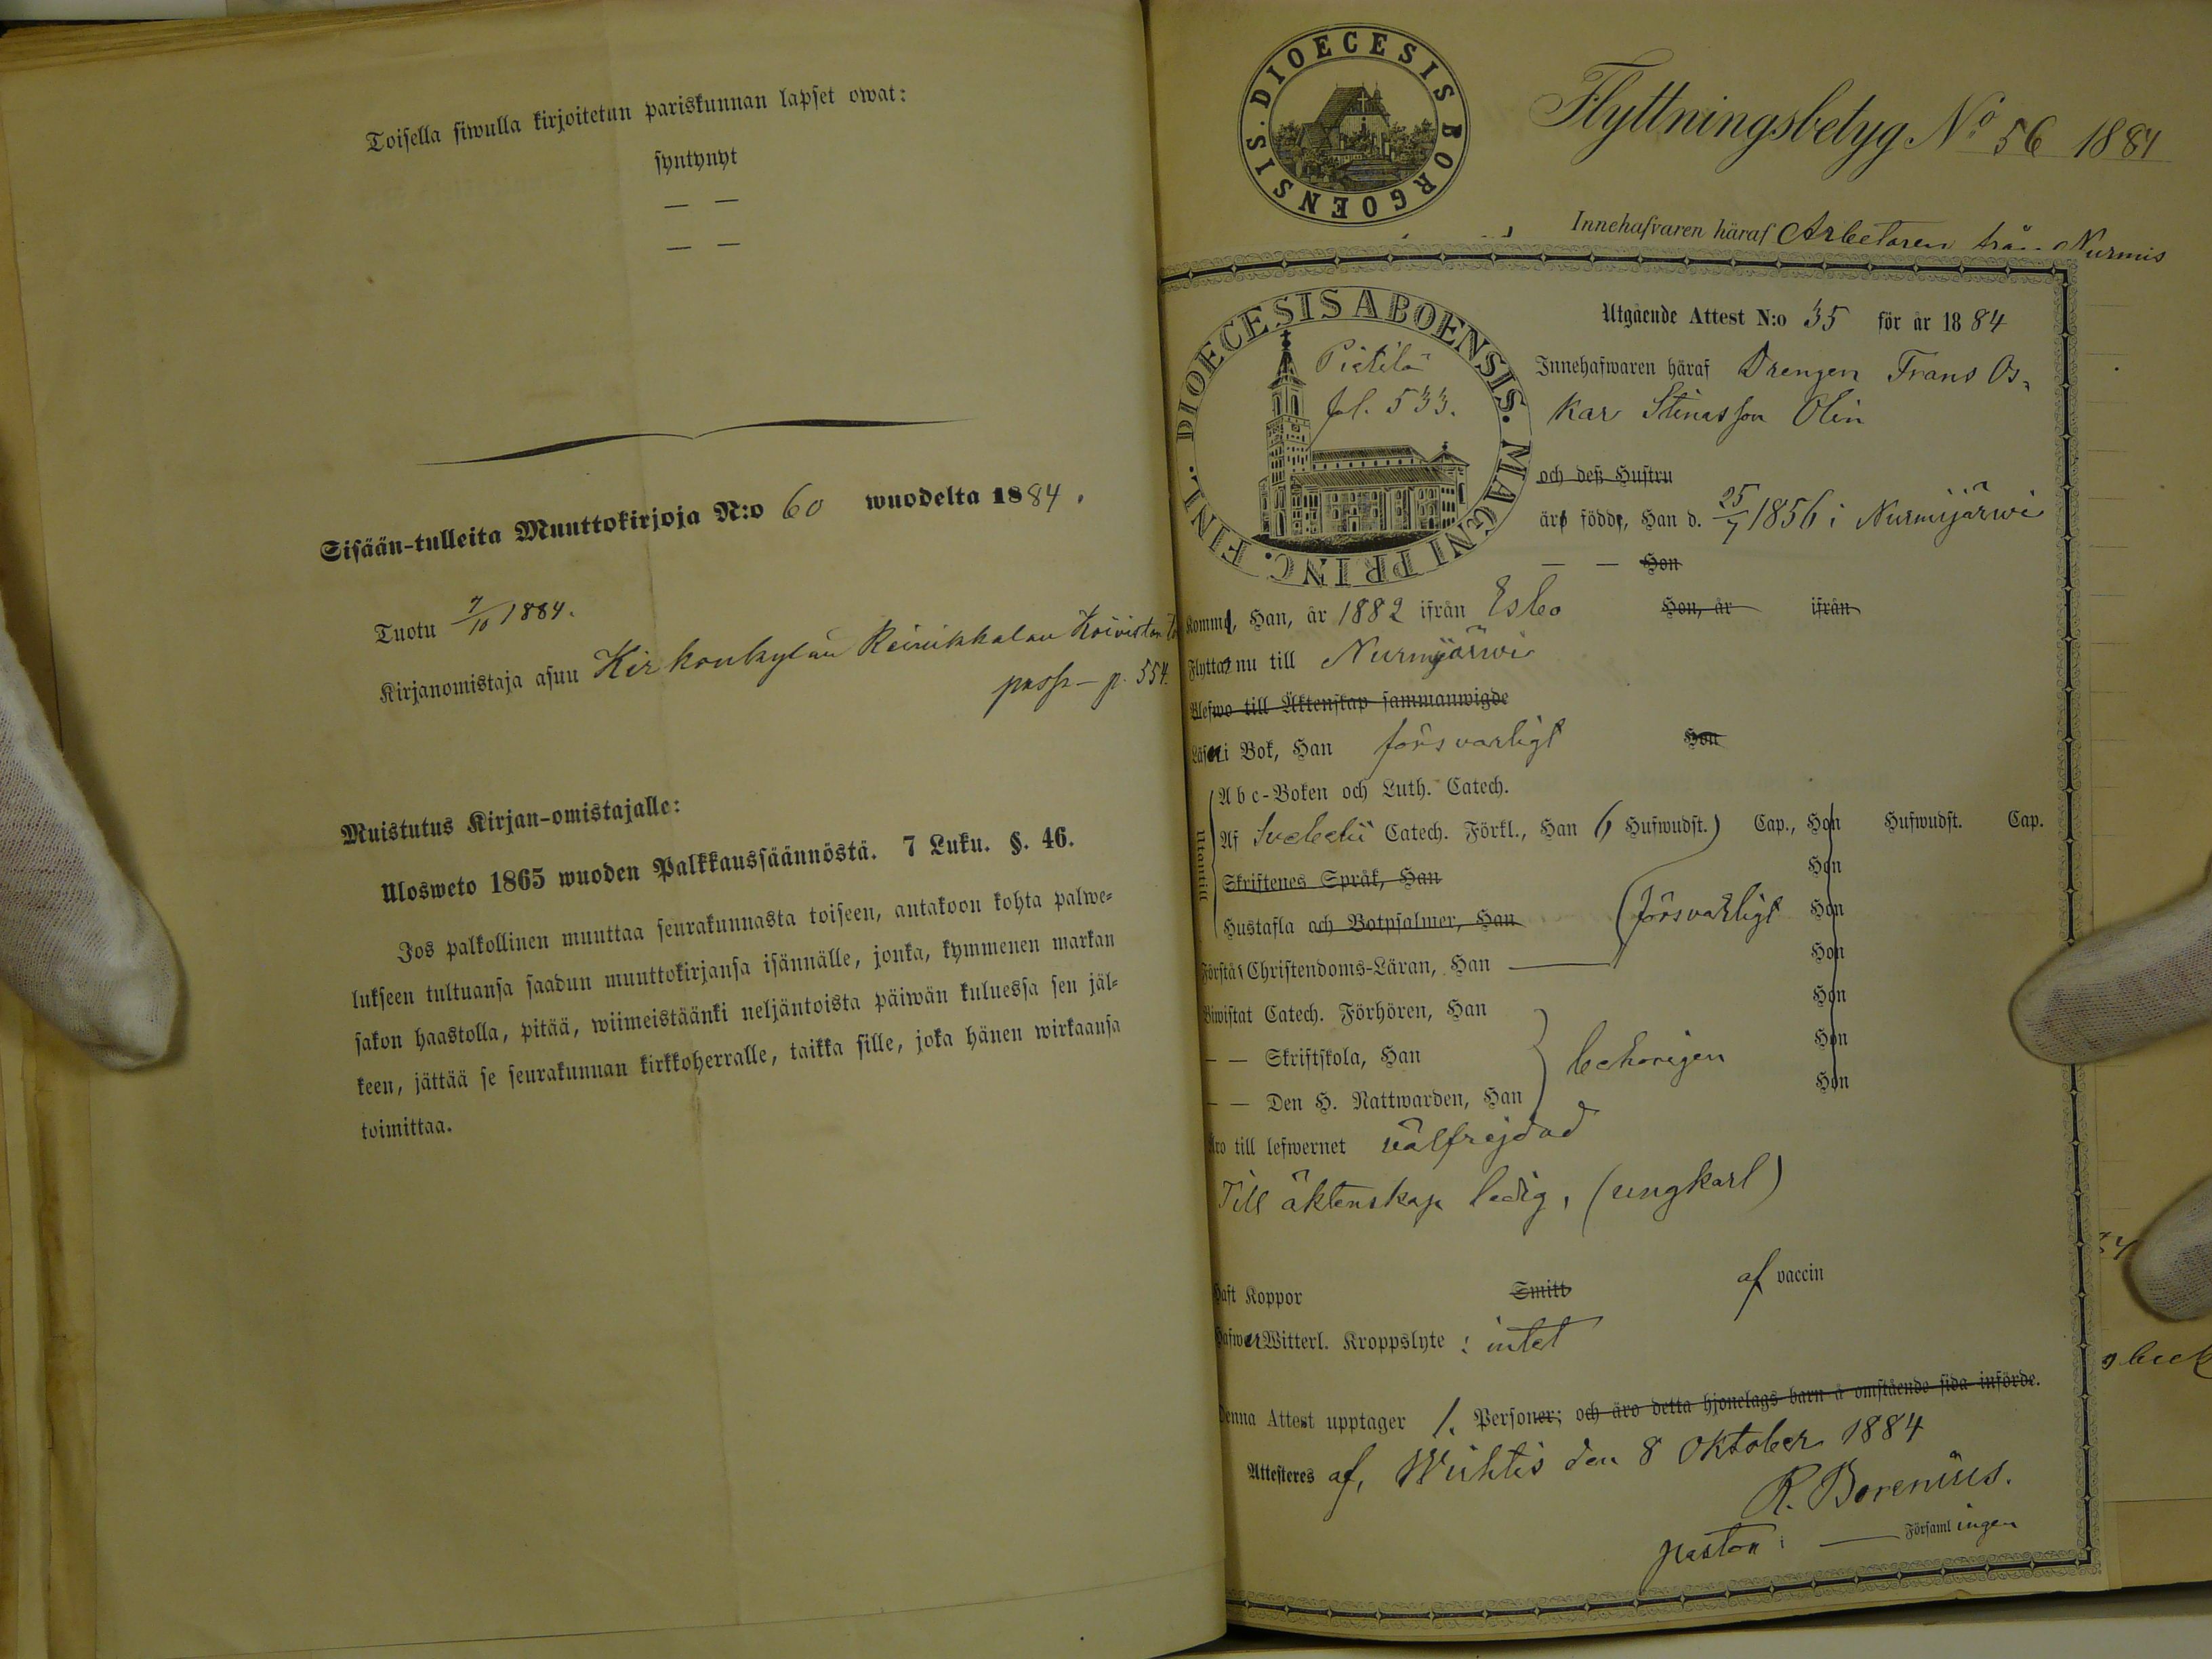 Toisella siwulla kirjoitetun pariskunnan lapset owat:
syntynyt
— —
— —
Sisään-tulleita Muuttokirjoja N:o 60 wuodelta 1884.
Tuotu 7/10 1884.
Kirjanomistaja asuu Kirkonkylän Reinikkalan Koiviston
p. 554.
Muistutus Kirjan-omistajalle:
Ulosweto 1865 wuoden Palkkaussäännöstä. 7 Luku. §. 46.
Jos palkollinen muuttaa seurakunnasta toiseen, antakoon kohta palwe-
lukseen tultuansa saadun muuttokirjansa isännälle, jonka, kymmenen markan
sakon haastolla, pitää, wiimeistäänki neljäntoista päiwän kuluessa sen jäl-
keen, jättää se seurakunnan kirkkoherralle, taikka sille, joka hänen wirkaansa
toimittaa.
DIOECESIS BORGOENSIS.
Flyttningsbetyg No 56 1884
Innehafvaren häraf Arbetaren från Nurmis
DIOECESIS ABOENSIS. MAGNI PRINC. FINL.
Pietilä
fol. 533.
Utgående Attest N:o 35 för år 1884
Innehafwaren häraf Drengen Frans Os-
kar Stinasson Olin
och dess Hustru
äro födde, Han d. 25/7 1856 i Nurmijärwi
— — Hon
Komm, Han, år 1882 ifrån Esbo Hon, år ifrån
Flyttar nu till Nurmijärwi
Blefwo till Äktenskap sammanwigde
Läser i Bok, Han försvarligt Hon
Utantill
Abc-Boken och Luth. Catech.
Af Svebelii Catech. Förkl., Han 6 Hufwudst.) Cap., Hon Hufwudst. Cap.
Skriftenes Språk, Han Hon
Hustafla och Botpsalmer, Han försvarligt Hon
Förstår Christendoms-Läran, Han — Hon
Biwistat Catech. Förhören, Han Hon
— — Skriftskola, Han behörigen Hon
— — Den H. Nattwarden, Han Hon
Äro till lefwernet välfrejdad
Till äktenskap ledig, (ungkarl)
Haft Koppor Smitt af vaccin
Hafwer Witterl. Kroppslyte: intet
Denna Attest upptager 1. Personer; och äro detta hjonelags barn å omstående sida införde.
Attesteres af, Wichtis den 8 Oktober 1884
R. Borenius.
pastor i — Församlingen